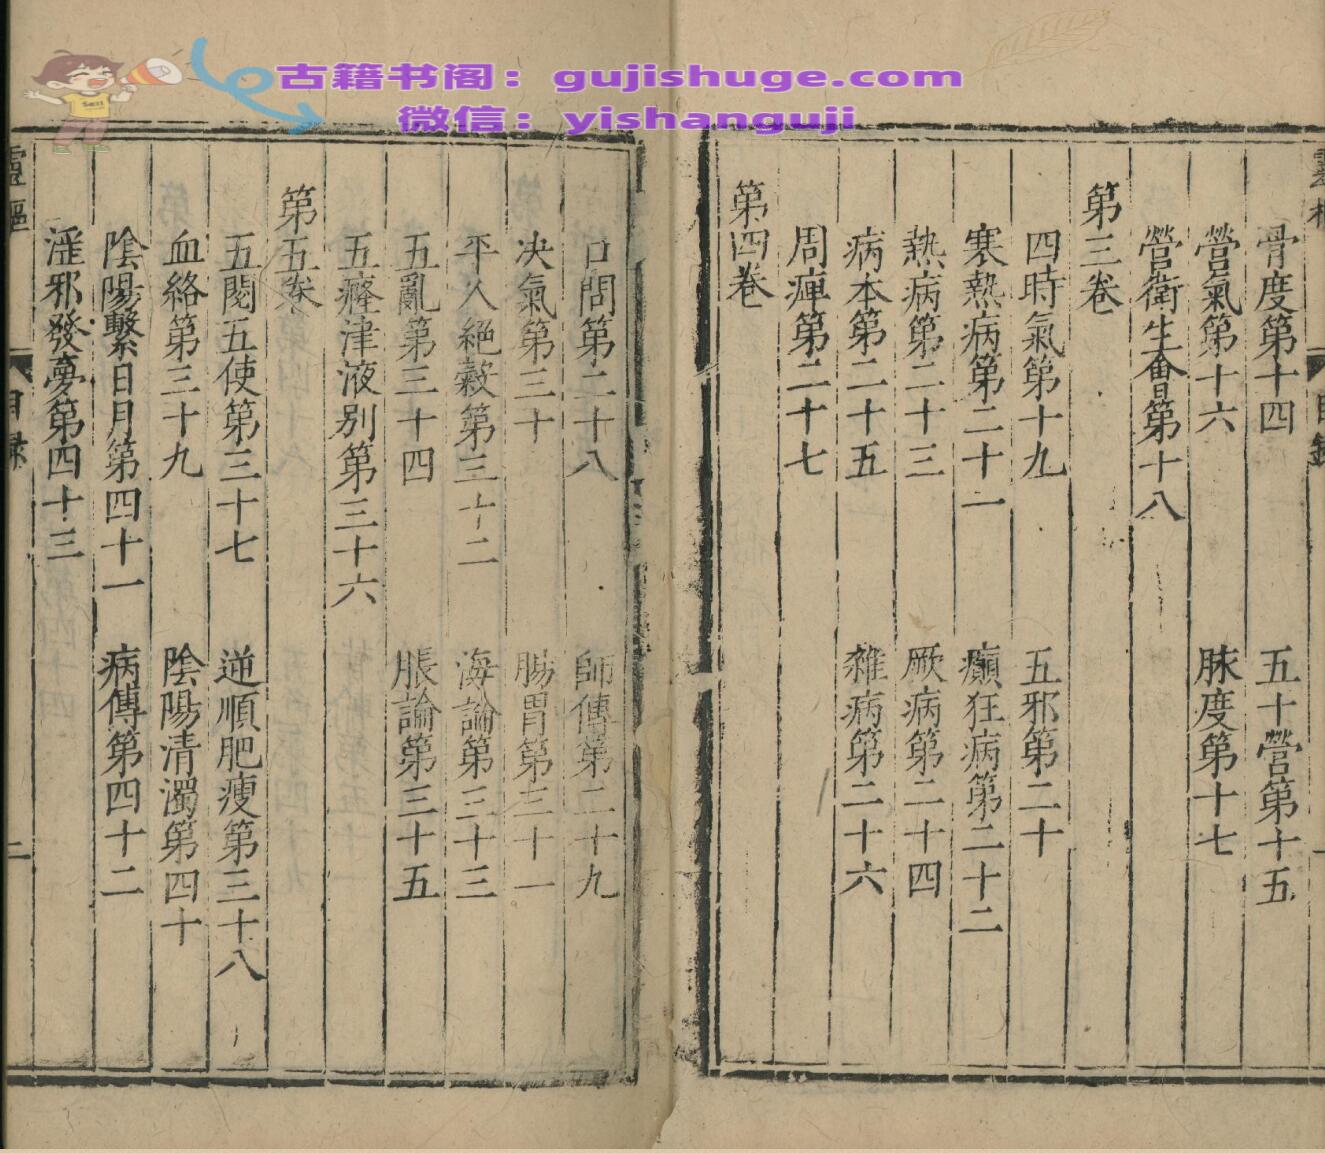 古籍书阁：gujishuge.com
微信：yishanguji
骨度第十四 五十營第十五
營氣第十六 脉度第十七
營衛生會第十八
第三卷
四時氣第十九 五邪第二十
寒熱病第二十一 癲狂病第二十二
熱病第二十三 厥病第二十四
病本第二十五 雜病第二十六
周痺第二十七
第四卷
口問第二十八 師傳第二十九
决氣第三十 腸胃第三十一
平人絕穀第三十二 海論第三十三
五亂第三十四 脹論第三十五
五癃津液别第三十六
第五卷
五閱五使第三十七 逆順肥瘦第三十八
血絡第三十九 陰陽清濁第四十
陰陽繫日月第四十一 病傳第四十二
淫邪發夢第四十三
靈樞 目録 二